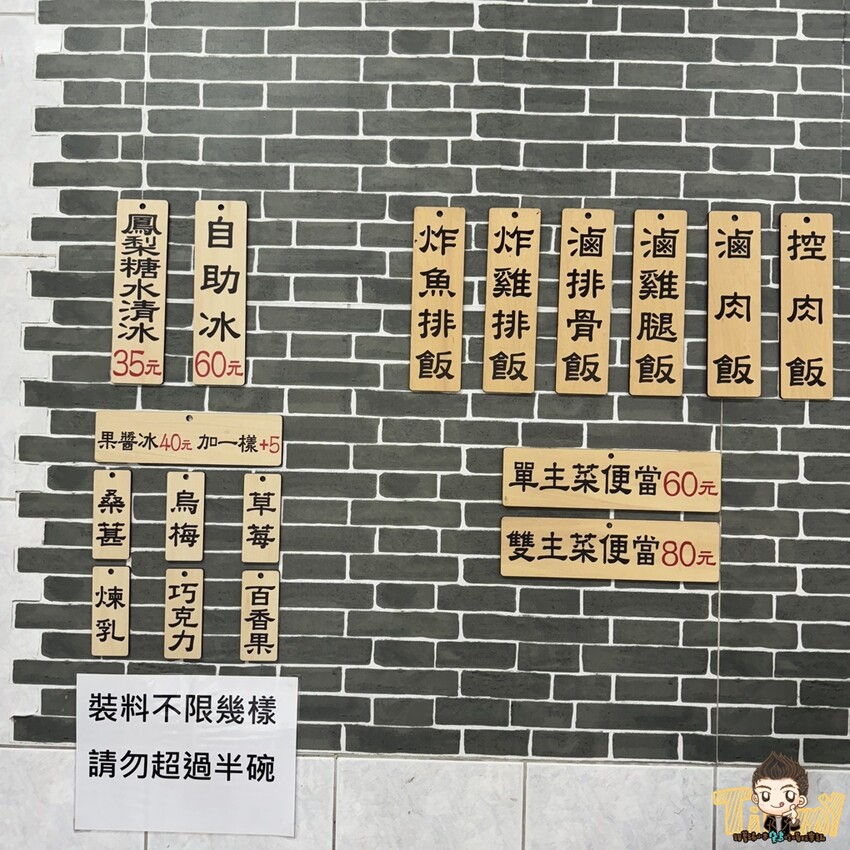 鳳梨糖水清冰
35元
自助冰
60元
果醬冰40元 加一樣+5
桑葚
烏梅
草莓
煉乳
巧克力
百香果
裝料不限幾樣
請勿超過半碗
炸魚排飯
炸雞排飯
滷排骨飯
滷雞腿飯
滷肉飯
控肉飯
單主菜便當60元
雙主菜便當80元